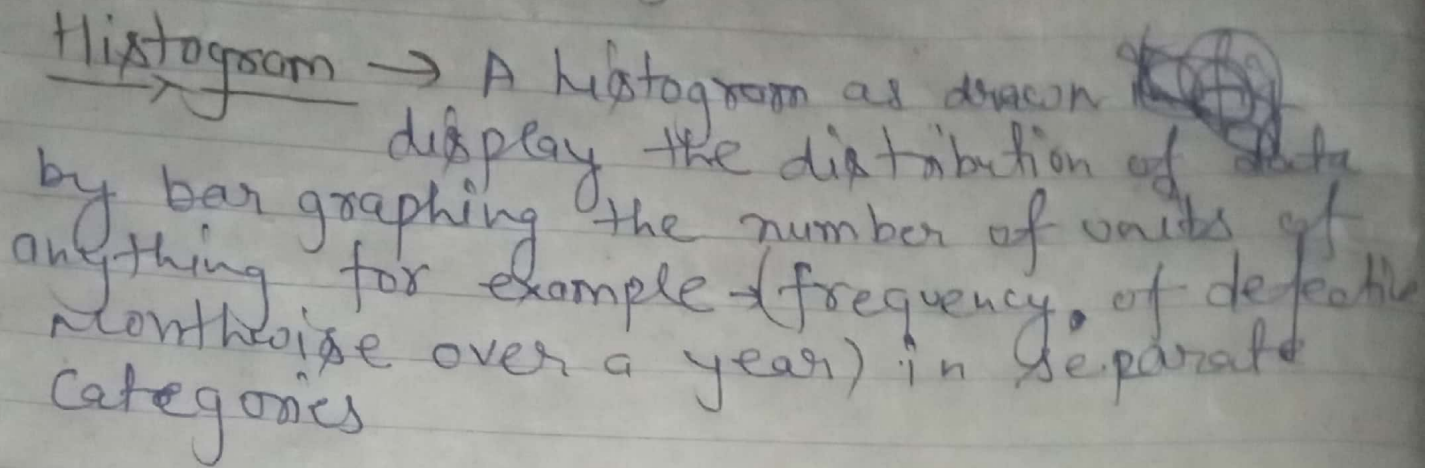 Histogram → A histogram as drawn
display the distribution of data
by bar graphing the number of units of
anything for example (frequency. of defective
Monthwise over a year) in separate
categories